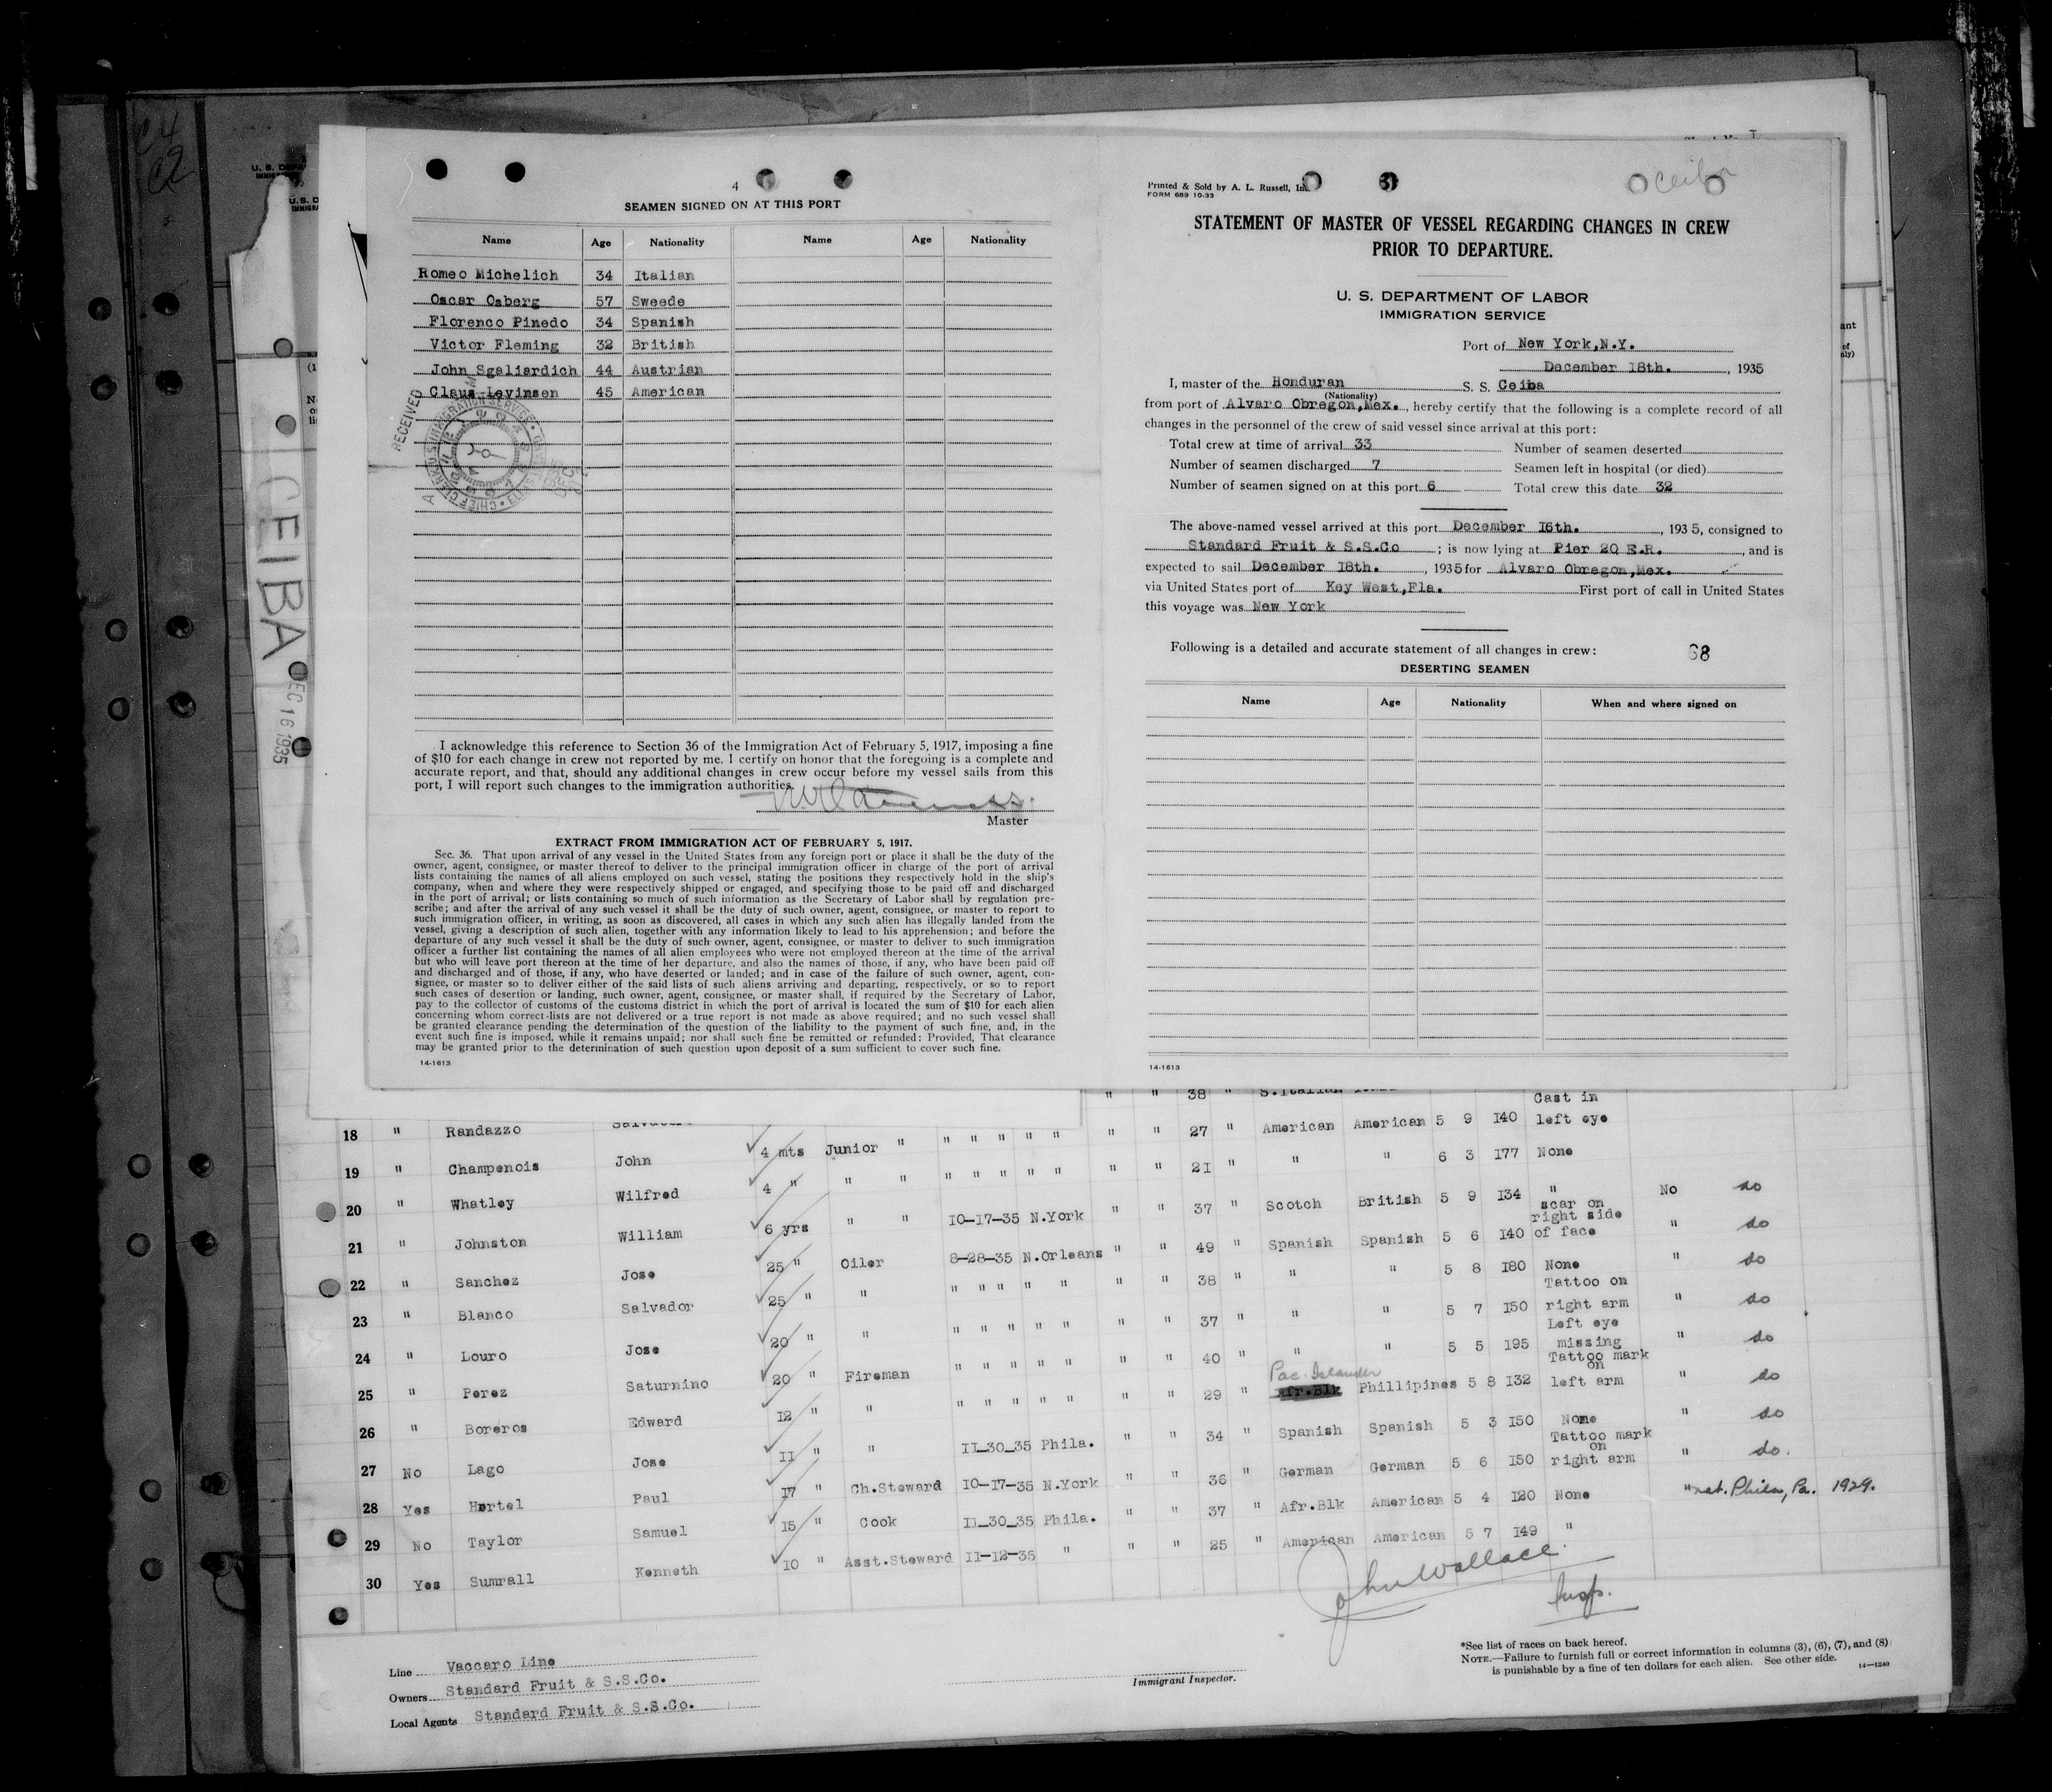 4
SEAMEN SIGNED ON AT THIS PORT
Name Age Nationality Name Age Nationality
Romeo Michelich 34 Italian
Oscar Osberg 57 Sweede
Florenco Pinedo 34 Spanish
Victor Fleming 32 British
John Sgaliardich 44 Austrian
Claus Levinsen 45 American
RECEIVED
I acknowledge this reference to Section 36 of the Immigration Act of February 5, 1917, imposing a fine
of $10 for each change in crew not reported by me. I certify on honor that the foregoing is a complete and
accurate report, and that, should any additional changes in crew occur before my vessel sails from this
port, I will report such changes to the immigration authorities.
Master
EXTRACT FROM IMMIGRATION ACT OF FEBRUARY 5, 1917.
Sec. 36. That upon arrival of any vessel in the United States from any foreign port or place it shall be the duty of the
owner, agent, consignee, or master thereof to deliver to the principal immigration officer in charge of the port of arrival
lists containing the names of all aliens employed on such vessel, stating the positions they respectively hold in the ship's
company, when and where they were respectively shipped or engaged, and specifying those to be paid off and discharged
in the port of arrival; or lists containing so much of such information as the Secretary of Labor shall by regulation pre-
scribe; and after the arrival of any such vessel it shall be the duty of such owner, agent, consignee, or master to report to
such immigration officer, in writing, as soon as discovered, all cases in which any such alien has illegally landed from the
vessel, giving a description of such alien, together with any information likely to lead to his apprehension; and before the
departure of any such vessel it shall be the duty of such owner, agent, consignee, or master to deliver to such immigration
officer a further list containing the names of all alien employees who were not employed thereon at the time of the arrival
but who will leave port thereon at the time of her departure, and also the names of those, if any, who have been paid off
and discharged and of those, if any, who have deserted or landed; and in case of the failure of such owner, agent, con-
signee, or master so to deliver either of the said lists of such aliens arriving and departing, respectively, or so to report
such cases of desertion or landing, such owner, agent, consignee, or master shall, if required by the Secretary of Labor,
pay to the collector of customs of the customs district in which the port of arrival is located the sum of $10 for each alien
concerning whom correct lists are not delivered or a true report is not made as above required; and no such vessel shall
be granted clearance pending the determination of the question of the liability to the payment of such fine, and, in the
event such fine is imposed, while it remains unpaid; nor shall such fine be remitted or refunded: Provided, That clearance
may be granted prior to the determination of such question upon deposit of a sum sufficient to cover such fine.
14-1613
Printed & Sold by A. L. Russell, Inc.
FORM 689 10-33
Ceiba
STATEMENT OF MASTER OF VESSEL REGARDING CHANGES IN CREW
PRIOR TO DEPARTURE.
U. S. DEPARTMENT OF LABOR
IMMIGRATION SERVICE
Port of New York,N.Y.
December 18th. , 1935
I, master of the Honduran S. S. Ceiba
(Nationality)
from port of Alvaro Obregon,Mex. , hereby certify that the following is a complete record of all
changes in the personnel of the crew of said vessel since arrival at this port:
Total crew at time of arrival 33 Number of seamen deserted
Number of seamen discharged 7 Seamen left in hospital (or died)
Number of seamen signed on at this port 6 Total crew this date 32
The above-named vessel arrived at this port December 16th. , 1935, consigned to
Standard Fruit & S.S.Co ; is now lying at Pier 20 E.R. , and is
expected to sail December 18th. , 1935 for Alvaro Obregon,Mex.
via United States port of Key West,Fla. First port of call in United States
this voyage was New York
Following is a detailed and accurate statement of all changes in crew: 68
DESERTING SEAMEN
Name Age Nationality When and where signed on
14-1613
CEIBA
DEC 16 1935
" " 38 " S.Italian
18 " Randazzo 4 mts Junior " " " " " " " " 27 " American American 5 9 140 Cast in left eye
19 " Champenois John 4 " " " " " " " " " " 21 " " " 6 3 177 None
20 " Whatley Wilfred 6 yrs " " 10-17-35 N.York " " 37 " Scotch British 5 9 134 " No do
21 " Johnston William 25 " Oiler 8-28-35 N.Orleans " " 49 " Spanish Spanish 5 6 140 scar on right side of face " do
22 " Sanchez Jose 25 " " " " " " " " " 38 " " " 5 8 180 None " do
23 " Blanco Salvador 20 " " " " " " " " " 37 " " " 5 7 150 Tattoo on right arm " do
24 " Louro Jose 20 " Fireman " " " " " " " 40 " " " 5 5 195 Left eye missing " do
25 " Perez Saturnino 12 " " " " " " " " " 29 " Pac. Islander Afr.Blk Phillipines 5 8 132 Tattoo mark on left arm " do
26 " Boreros Edward 11 " " 11-30-35 Phila. " " 34 " Spanish Spanish 5 3 150 None " do
27 No Lago Jose 17 " Ch.Steward 10-17-35 N.York " " 36 " German German 5 6 150 Tattoo mark on right arm " do.
28 Yes Hertel Paul 15 " Cook 11-30-35 Phila. " " 37 " Afr.Blk American 5 4 120 None " nat. Phila, Pa. 1929.
29 No Taylor Samuel 10 " Asst.Steward 11-12-35 " " " 25 " American American 5 7 149 "
30 Yes Sumrall Kenneth
John Wallace
Insp.
Line Vaccaro Line
Owners Standard Fruit & S.S.Co.
Local Agents Standard Fruit & S.S.Co.
Immigrant Inspector.
*See list of races on back hereof.
NOTE.—Failure to furnish full or correct information in columns (3), (6), (7), and (8)
is punishable by a fine of ten dollars for each alien. See other side. 14—1240